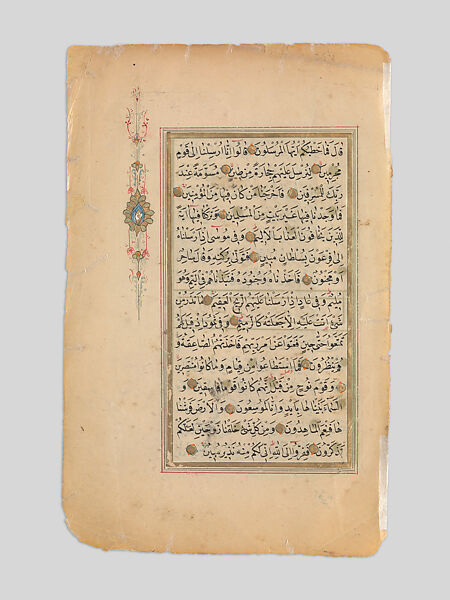 قَالَ فَمَا خَطْبُكُمْ أَيُّهَا الْمُرْسَلُونَ قَالُوا إِنَّا أُرْسِلْنَا إِلَى قَوْمٍ
مُجْرِمِينَ لِنُرْسِلَ عَلَيْهِمْ حِجَارَةً مِنْ طِينٍ مُسَوَّمَةً عِنْدَ
رَبِّكَ لِلْمُسْرِفِينَ فَأَخْرَجْنَا مَنْ كَانَ فِيهَا مِنَ الْمُؤْمِنِينَ
فَمَا وَجَدْنَا فِيهَا غَيْرَ بَيْتٍ مِنَ الْمُسْلِمِينَ وَتَرَكْنَا فِيهَا آيَةً
لِلَّذِينَ يَخَافُونَ الْعَذَابَ الْأَلِيمَ وَفِي مُوسَى إِذْ أَرْسَلْنَاهُ
إِلَى فِرْعَوْنَ بِسُلْطَانٍ مُبِينٍ فَتَوَلَّى بِرُكْنِهِ وَقَالَ سَاحِرٌ
أَوْ مَجْنُونٌ فَأَخَذْنَاهُ وَجُنُودَهُ فَنَبَذْنَاهُمْ فِي الْيَمِّ وَهُوَ
مُلِيمٌ وَفِي عَادٍ إِذْ أَرْسَلْنَا عَلَيْهِمُ الرِّيحَ الْعَقِيمَ مَا تَذَرُ مِنْ
شَيْءٍ أَتَتْ عَلَيْهِ إِلَّا جَعَلَتْهُ كَالرَّمِيمِ وَفِي ثَمُودَ إِذْ قِيلَ لَهُمْ
تَمَتَّعُوا حَتَّى حِينٍ فَعَتَوْا عَنْ أَمْرِ رَبِّهِمْ فَأَخَذَتْهُمُ الصَّاعِقَةُ وَهُمْ
يَنْظُرُونَ فَمَا اسْتَطَاعُوا مِنْ قِيَامٍ وَمَا كَانُوا مُنْتَصِرِينَ
وَقَوْمَ نُوحٍ مِنْ قَبْلُ إِنَّهُمْ كَانُوا قَوْمًا فَاسِقِينَ وَ
السَّمَاءَ بَنَيْنَاهَا بِأَيْدٍ وَإِنَّا لَمُوسِعُونَ وَالْأَرْضَ فَرَشْنَا
هَا فَنِعْمَ الْمَاهِدُونَ وَمِنْ كُلِّ شَيْءٍ خَلَقْنَا زَوْجَيْنِ لَعَلَّكُمْ
تَذَكَّرُونَ فَفِرُّوا إِلَى اللَّهِ إِنِّي لَكُمْ مِنْهُ نَذِيرٌ مُبِينٌ